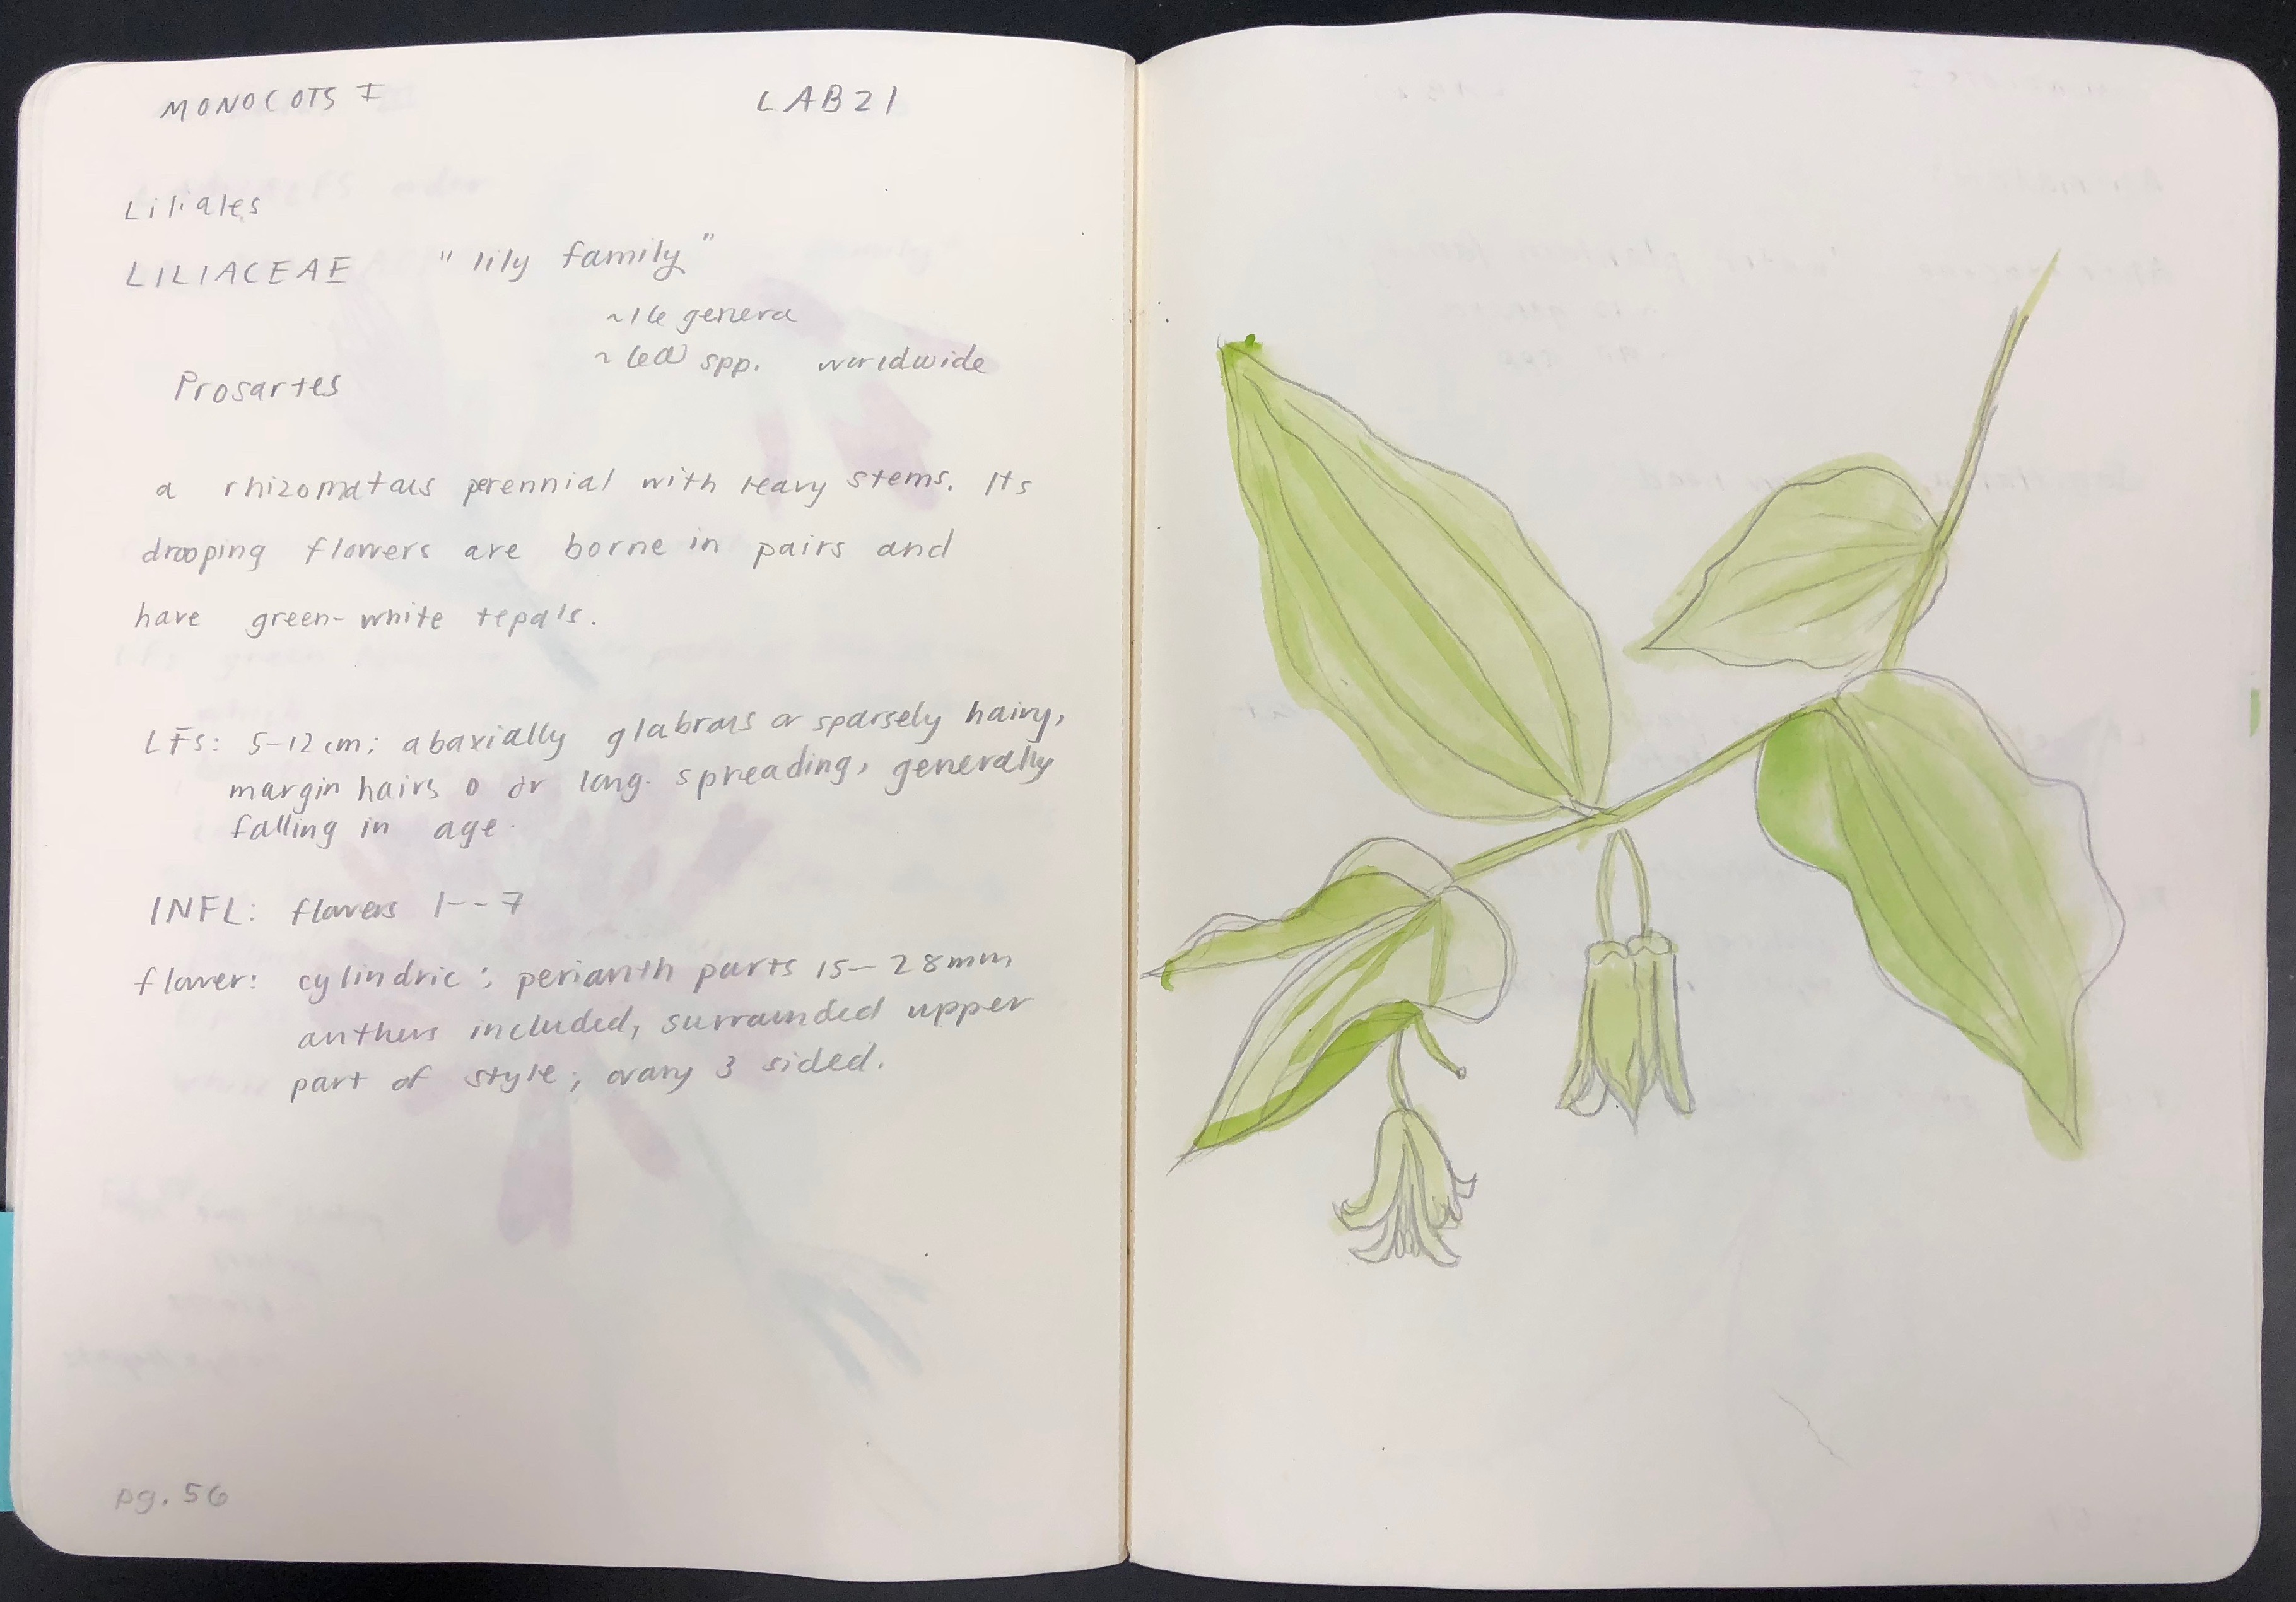 MONOCOTS I LAB21
Liliales
LILIACEAE "lily family"
~16 genera
~600 spp. worldwide
Prosartes
a rhizomatous perennial with leavy stems. Its
drooping flowers are borne in pairs and
have green-white tepals.
LFs: 5-12 cm; abaxially glabrous or sparsely hairy,
margin hairs 0 or long. spreading, generally
falling in age.
INFL: flowers 1--7
flower: cylindric; perianth parts 15-28mm
anthers included, surrounded upper
part of style; ovary 3 sided.
pg. 56